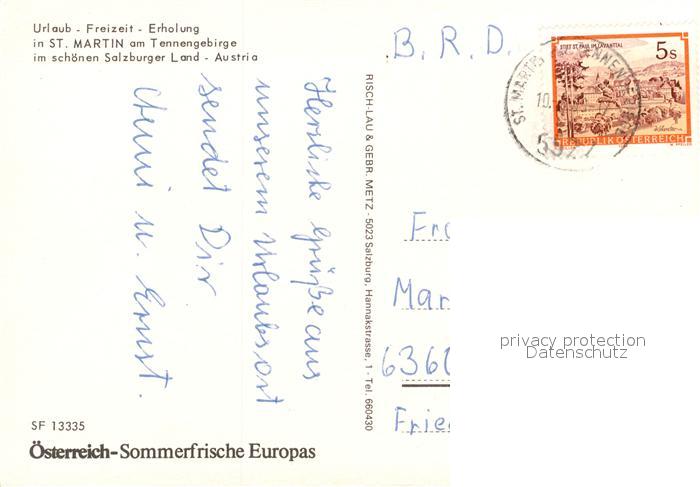 Urlaub - Freizeit - Erholung
in ST. MARTIN am Tennengebirge
im schönen Salzburger Land - Austria
Herzliche Grüße aus
unserem Urlaubsort
sendet Dir
u. Ernst.
SF 13335
Österreich-Sommerfrische Europas
RISCH-LAU & GEBR. METZ - 5023 Salzburg, Hannakstrasse, 1 - Tel. 660430
B. R. D.
STIFT ST. PAUL IM LAVANTTAL
5s
REPUBLIK ÖSTERREICH
ST. MARTIN
10.
Fr
Mar
636
Frie
privacy protection
Datenschutz